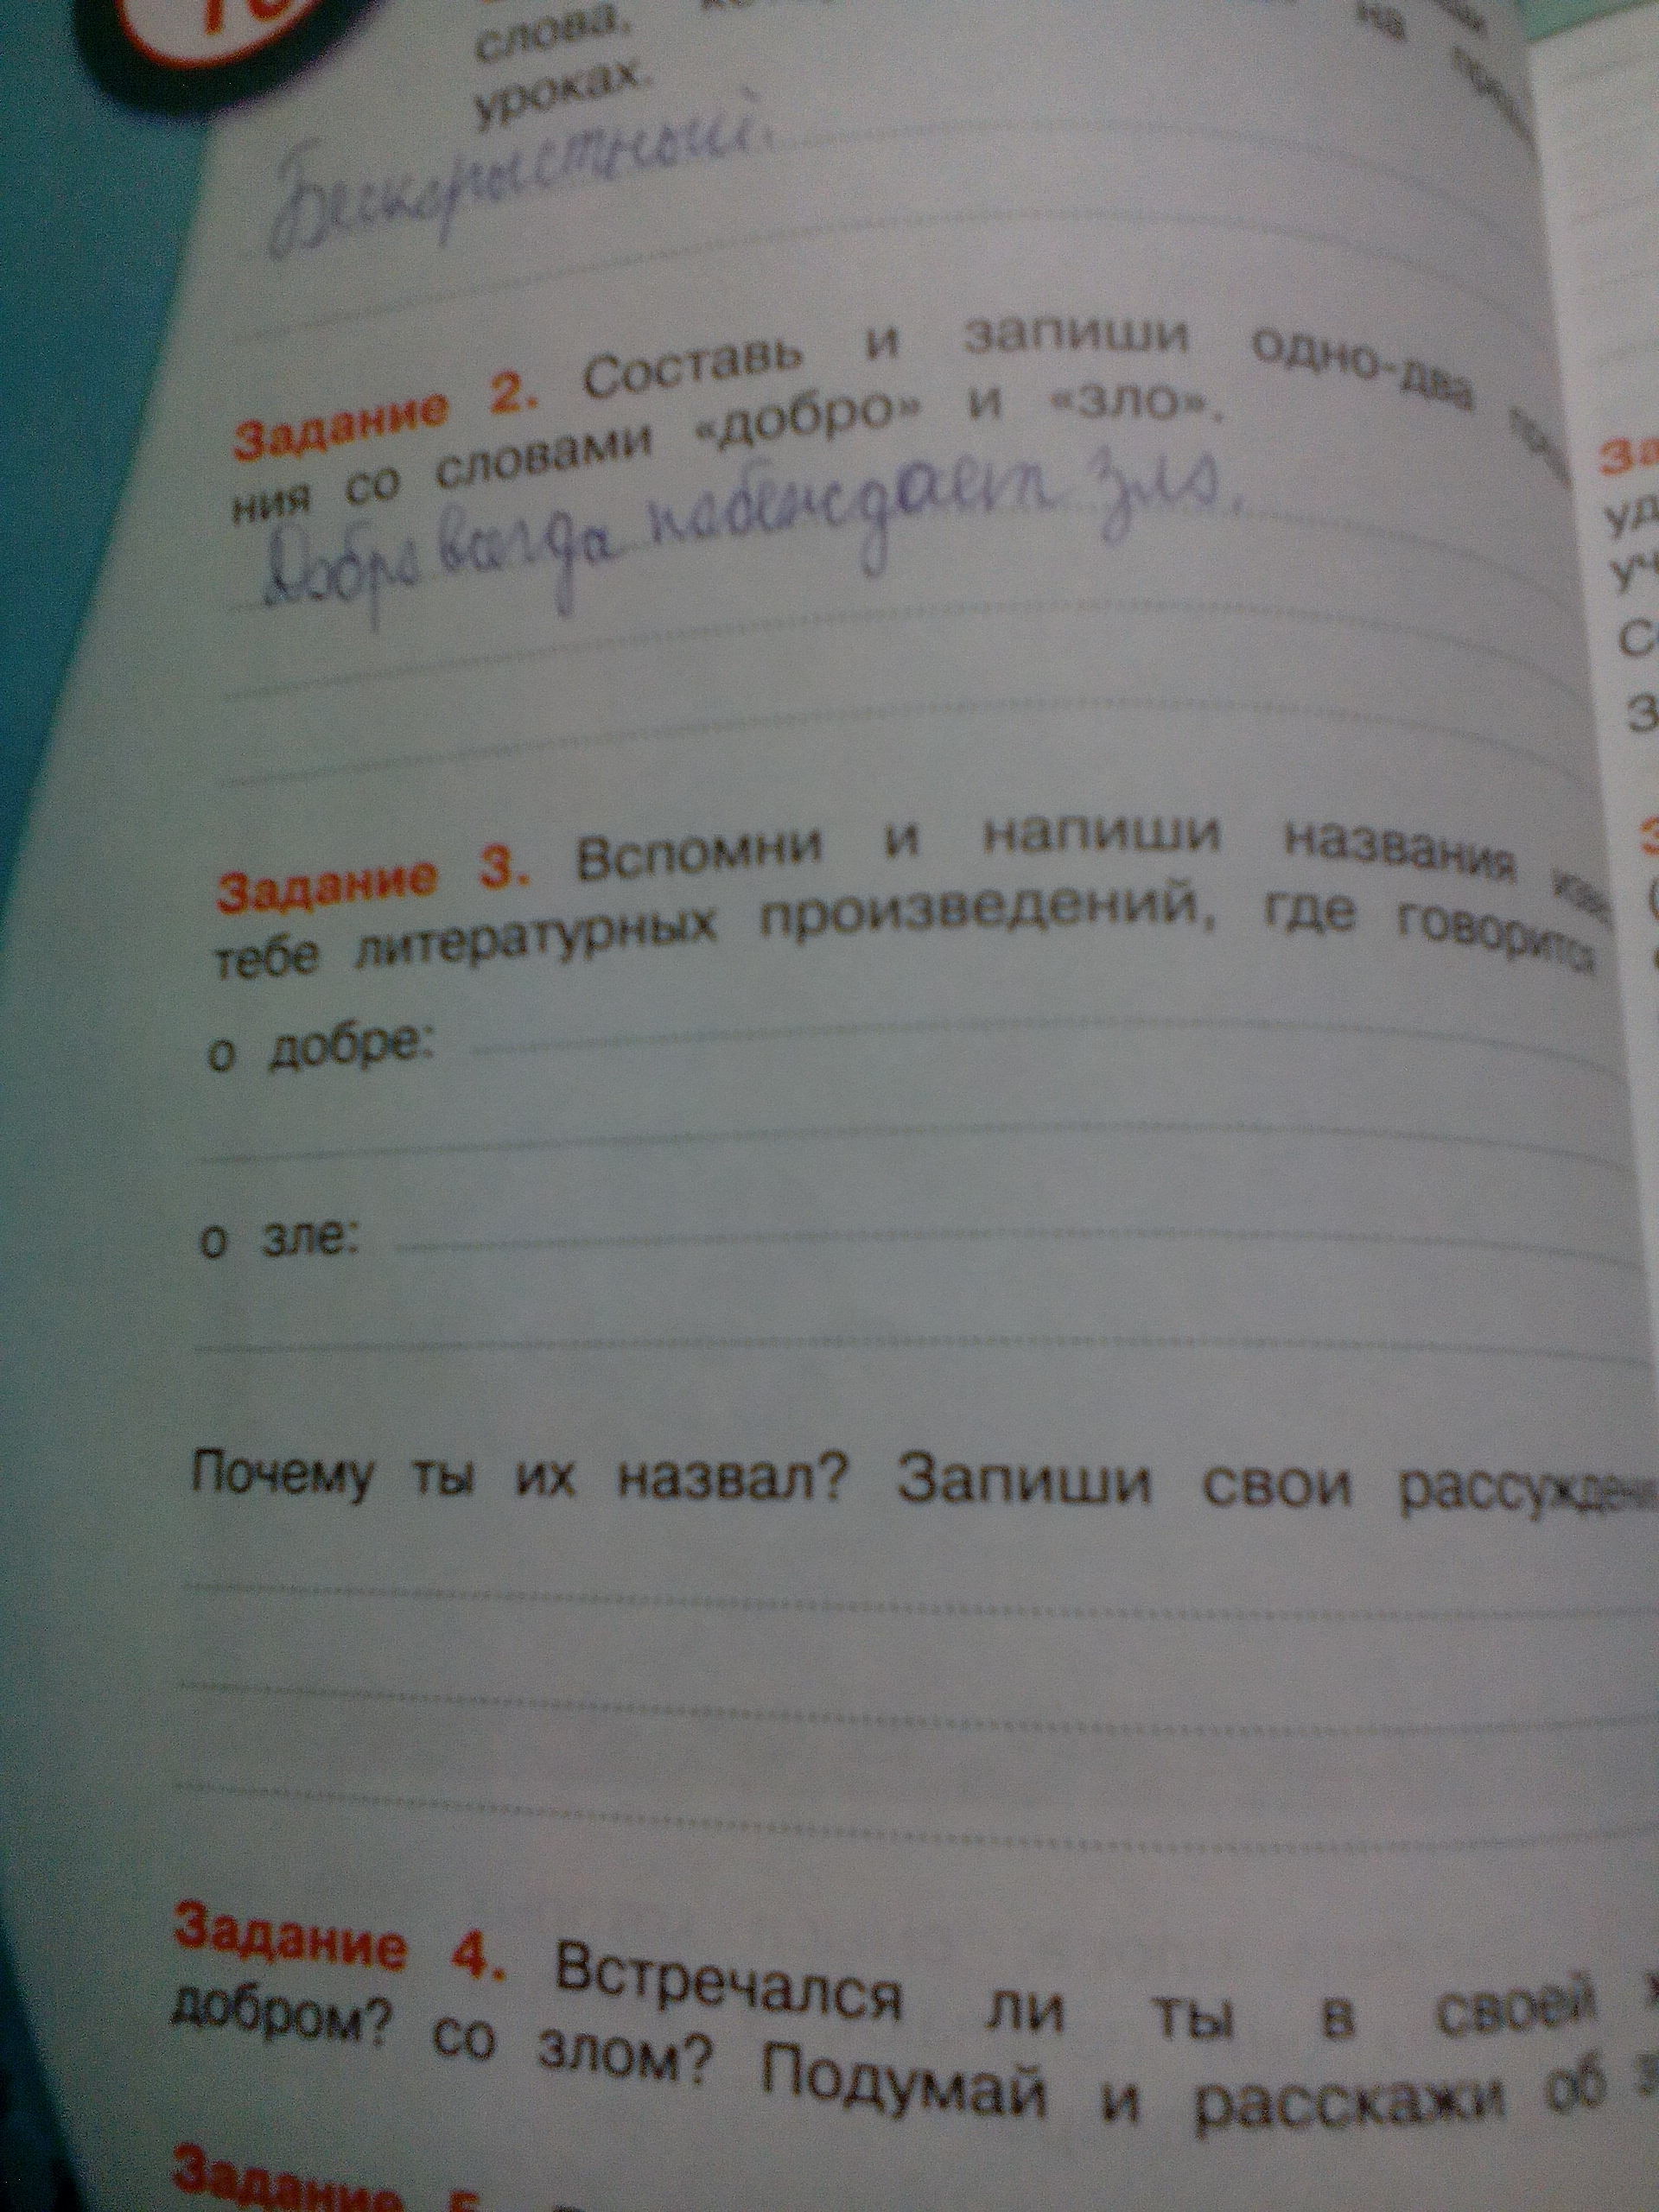 10
слова,
на
уроках.
Бескорыстный.
Задание 2. Составь и запиши одно-два
ния со словами «добро» и «зло».
Добро всегда пабеждает зло.
Задание 3. Вспомни и напиши названия
тебе литературных произведений, где говорится
о добре:
о зле:
Почему ты их назвал? Запиши свои
Задание 4. Встречался ли ты в своей
добром? со злом? Подумай и расскажи об
Задание 5.
За
уд
уч
З